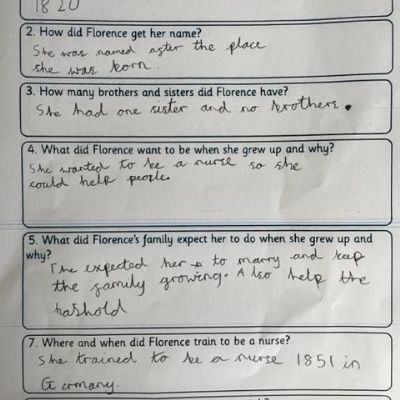 1820
2. How did Florence get her name?
She was named after the place
she was born.
3. How many brothers and sisters did Florence have?
She had one sister and no brothers.
4. What did Florence want to be when she grew up and why?
She wanted to be a nurse so she
could help people.
5. What did Florence's family expect her to do when she grew up and
why?
The expected her to marry and keep
the family growing. Also help the
hashold
7. Where and when did Florence train to be a nurse?
She trained to be a nurse 1851 in
Germany.